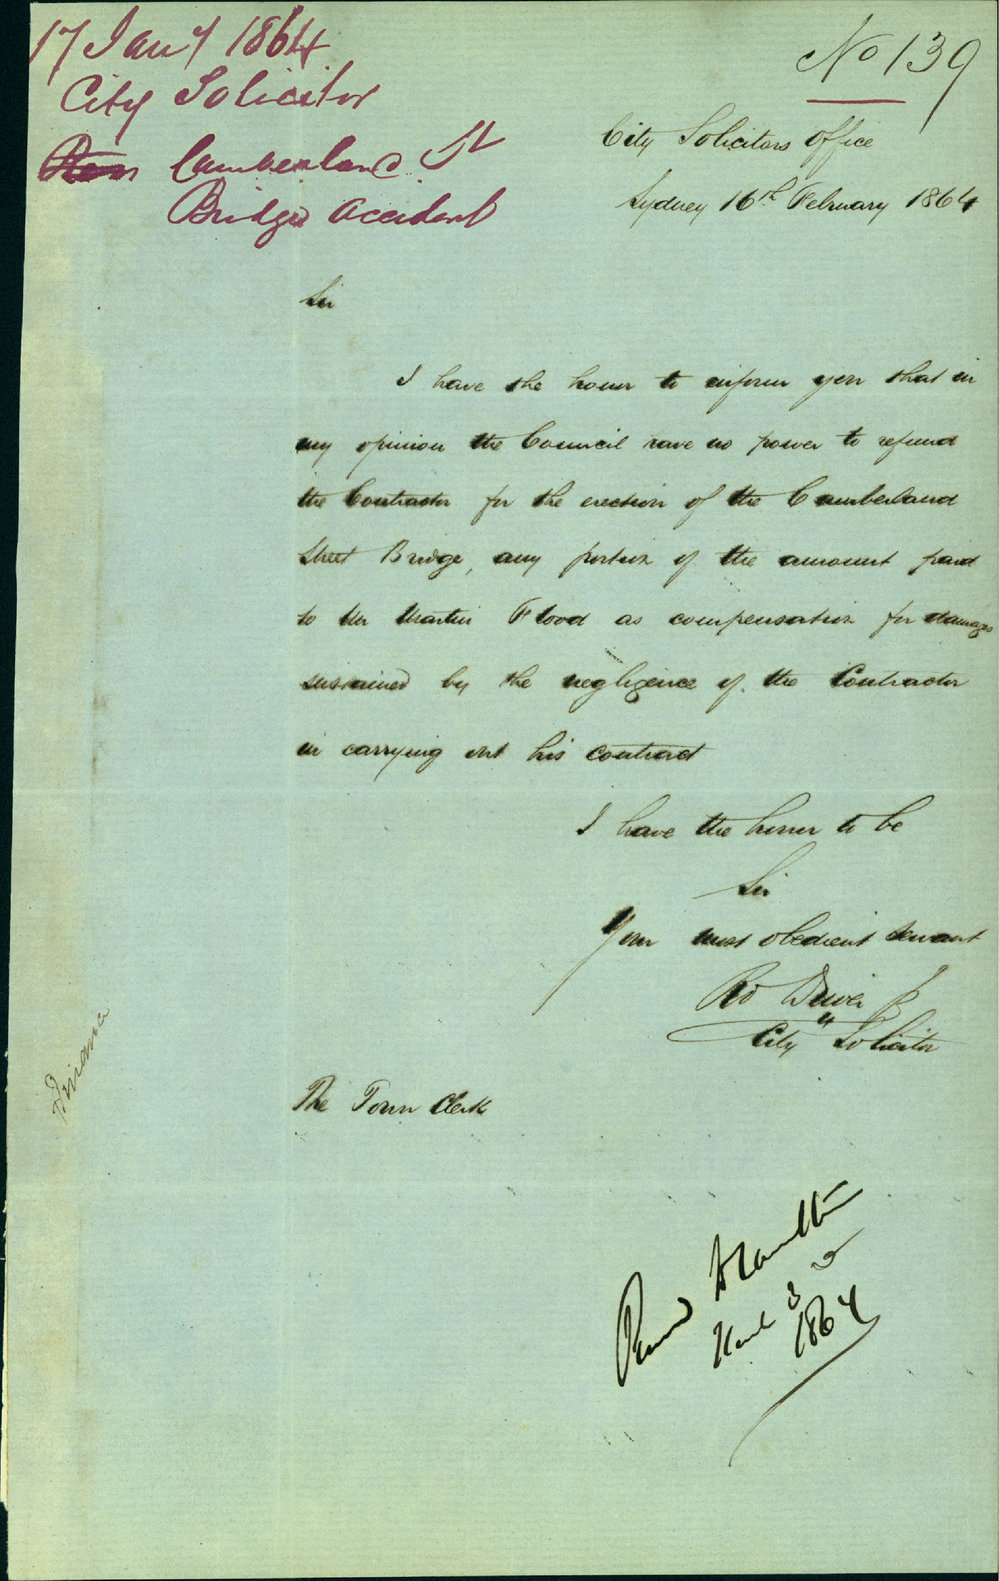 17 Jany 1864
City Solicitor
Cumberland St
Bridge Accident
No 139
City Solicitors Office
Sydney 16th February 1864
Sir
I have the honor to inform you that in
my opinion the Council have no power to refund
the Contractor for the erection of the Cumberland
Street Bridge, any portion of the amount paid
to Mr Martin Flood as compensation for damages
sustained by the negligence of the Contractor
in carrying out his contract
I have the honor to be
Sir
Your most obedient Servant
Rd Driver Jr
City Solicitor
The Town Clerk
Finance
1864